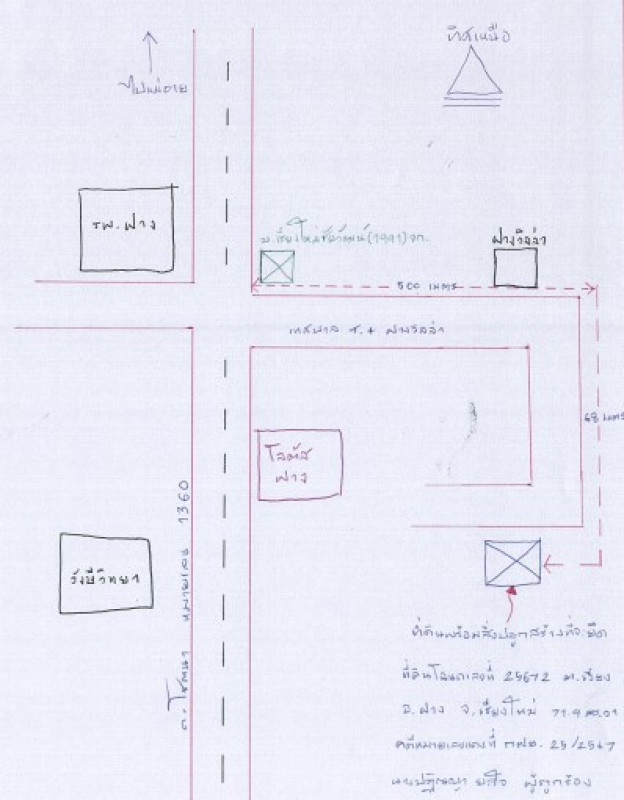 ทิศเหนือ
ไปแม่อาย
รพ.ฝาง
บ.เชียงใหม่ชัยวัฒน์(1991)จก.
ฝางวิลล่า
500 เมตร
เทศบาล ซ.4 ฝางวิลล่า
68 เมตร
โลตัส
ฝาง
ถ.โชตนา หมายเลข 1360
รังษีวิทยา
ที่ดินพร้อมสิ่งปลูกสร้างที่จะยึด
ที่ดินโฉนดเลขที่ 25672 ต.เวียง
อ.ฝาง จ.เชียงใหม่ 71.9 ตร.วา
คดีหมายเลขแดงที่ 25/2567
ผู้ถูกฟ้อง